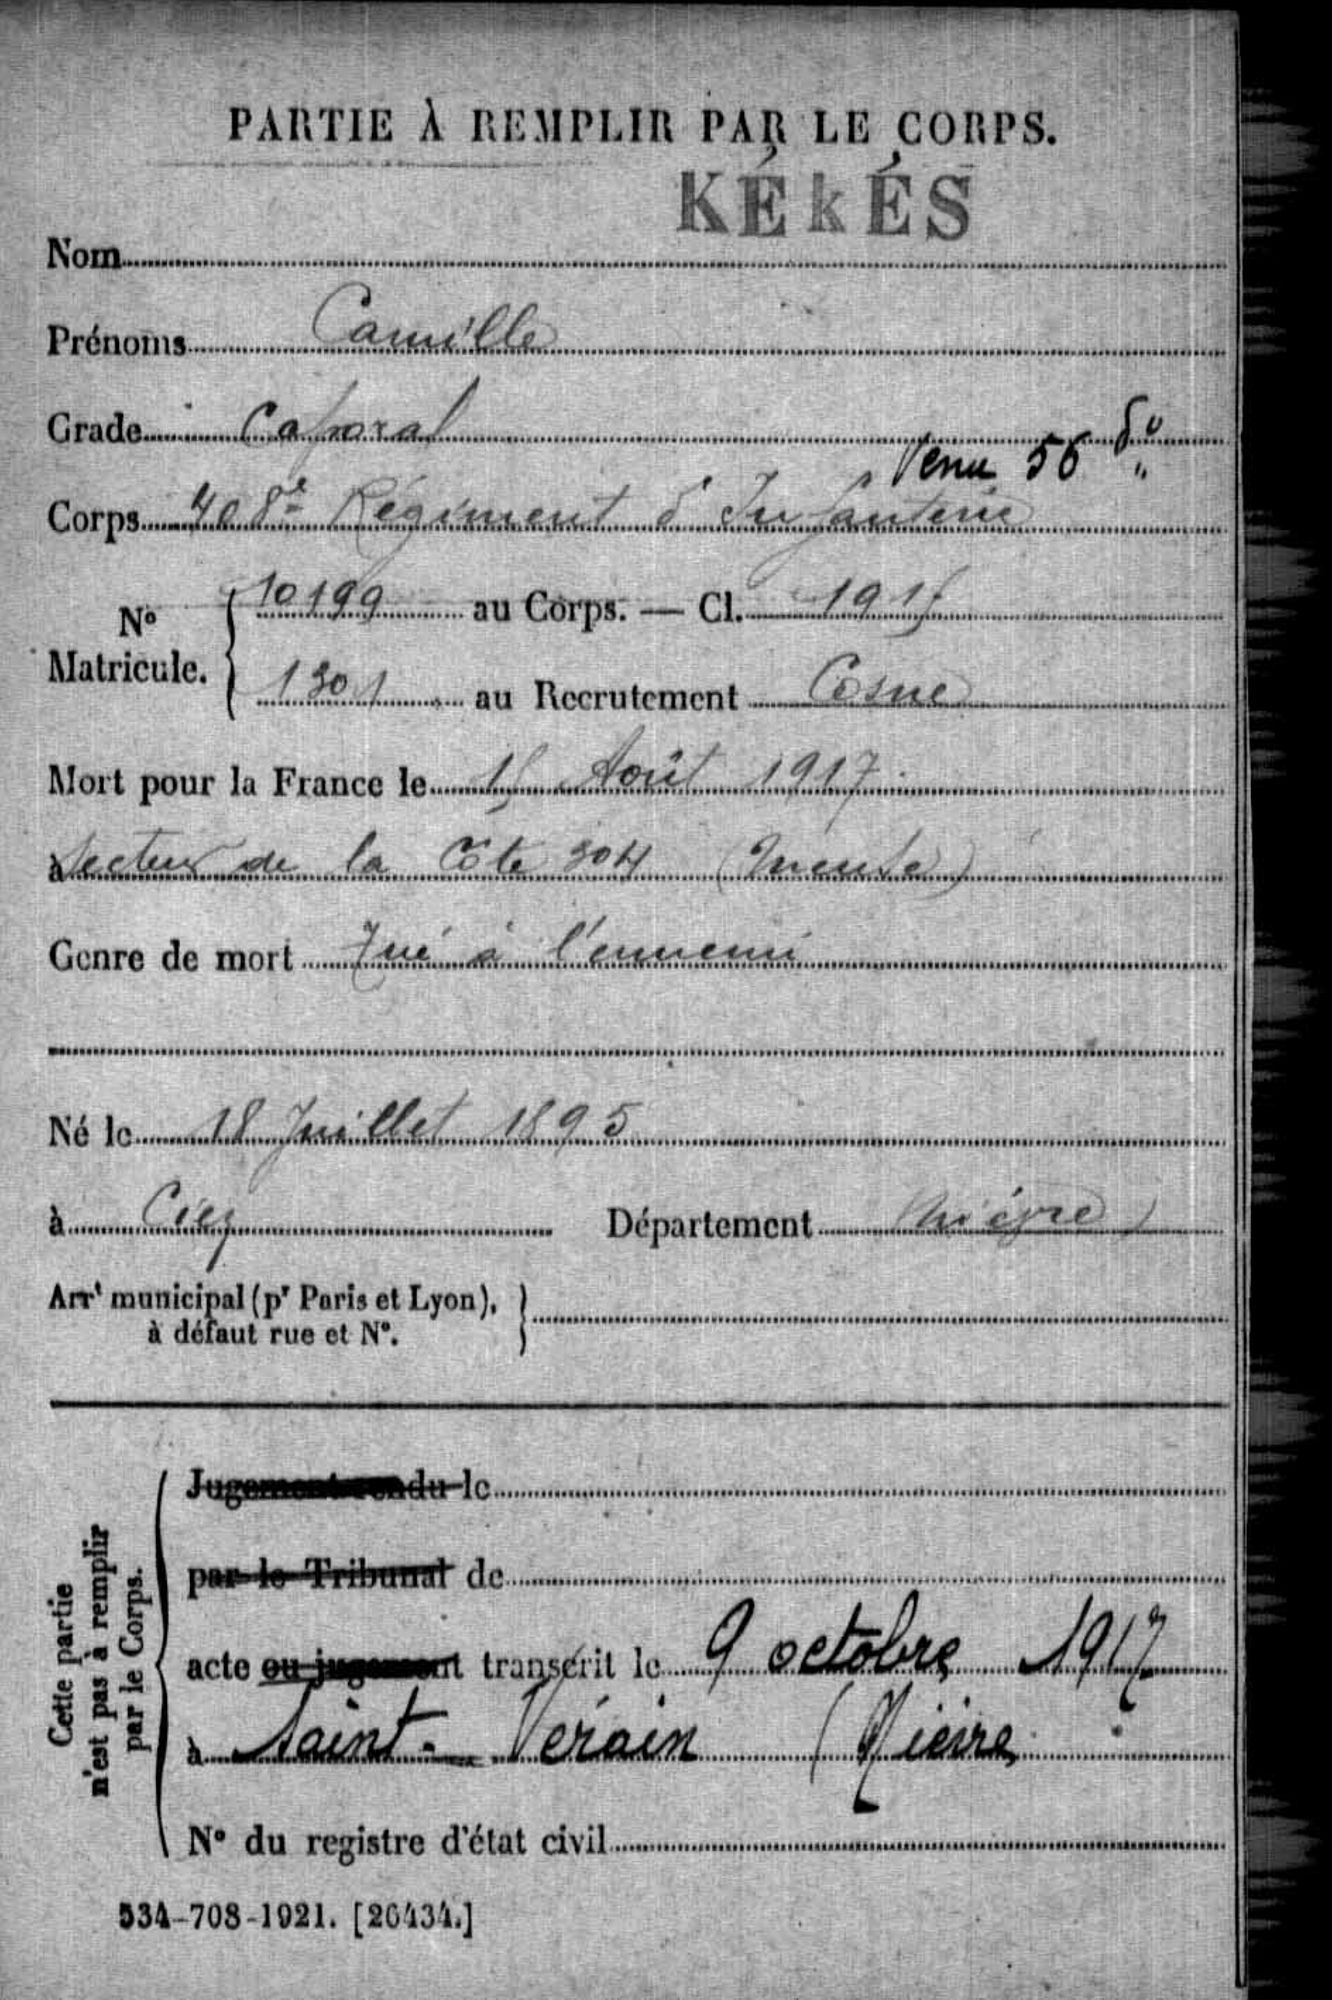 PARTIE À REMPLIR PAR LE CORPS.
KÉkÉS
Nom
Prénoms Camille
Grade Caporal
Venu 56 d°
Corps 408e Régiment d'Infanterie
N° Matricule. { 10199 au Corps. — Cl. 1915
1301 au Recrutement Cosne
Mort pour la France le 15 Août 1917
à Secteur de la Côte 304 (Meuse)
Genre de mort Tué à l'ennemi
Né le 18 Juillet 1895
à Ciez Département Nièvre
Arrt municipal (pr Paris et Lyon),
à défaut rue et N°.
Cette partie
n'est pas à remplir
par le Corps.
Jugement rendu le
par le Tribunal de
acte ou jugement transcrit le 9 octobre 1917
à Saint-Verain (Nièvre
N° du registre d'état civil
534-708-1921. [26434.]